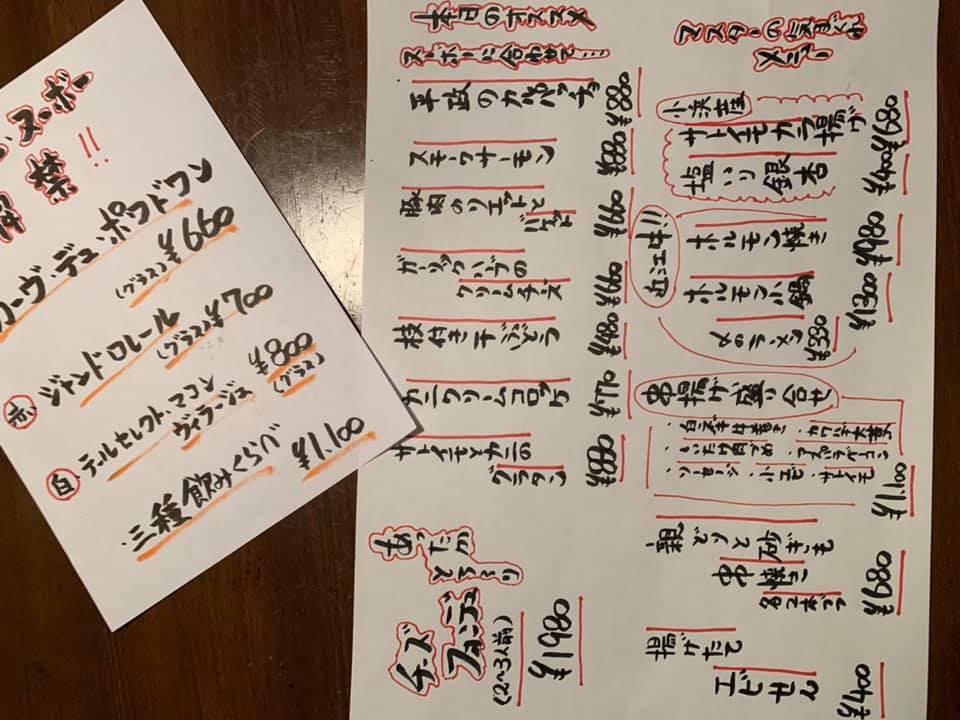 ヌーボー
禁!!
カーヴ・デュ・ポワドワン
(グラス)¥660
赤 ジャンドロレール
(グラス)¥700
白 テールセレクト・マコン
ヴィラージュ ¥800
(グラス)
三種飲みくらべ ¥1,100
本日のオススメ
ヌーボーに合わせて…
平政のカルパッチョ ¥880
スモークサーモン ¥880
豚肉のリエットと
バゲット ¥660
ガーリックハーブの
クリームチーズ ¥660
枝付き干しぶどう ¥480
カニクリームコロッケ ¥770
サトイモとカニの
グラタン ¥880
あったか
とろ〜り
チーズ
フォンデュ
(2〜3人前)
¥1980
マスターの気まぐれ
メニュー
小浜産
サトイモカラ揚げ ¥680
塩いり銀杏 ¥400
近江牛!!
ホルモン焼き ¥980
ホルモン小鍋 ¥1300
〆のラーメン ¥330
串揚げ盛り合せ
・しいたけ肉づめ ・アスパラベーコン
・ソーセージ ・サトイモ
¥1,100
親どりと砂ぎも
串焼き
各2本づつ ¥680
揚げたて
エビせん ¥400